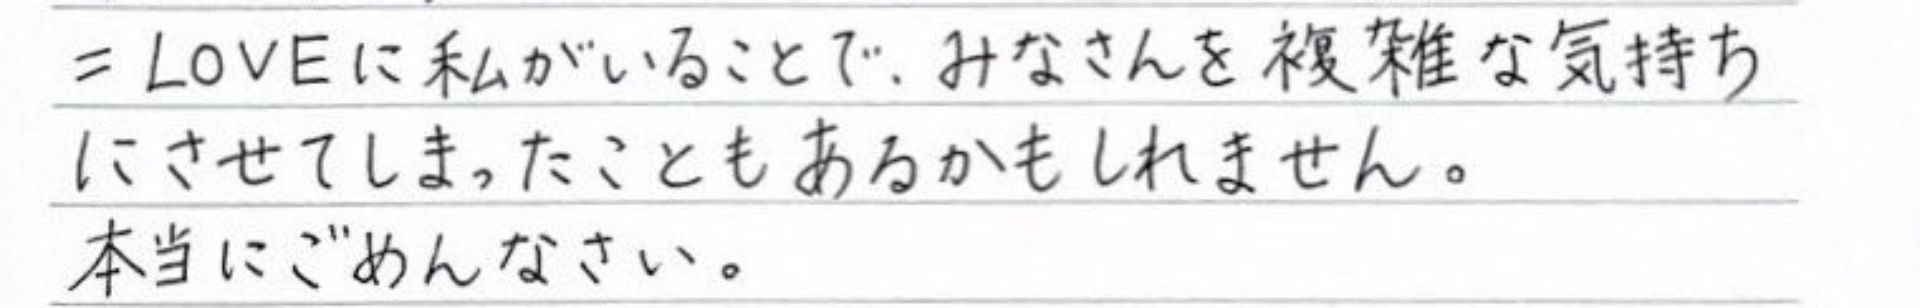 =LOVEに私がいることで、みなさんを複雑な気持ち
にさせてしまったこともあるかもしれません。
本当にごめんなさい。